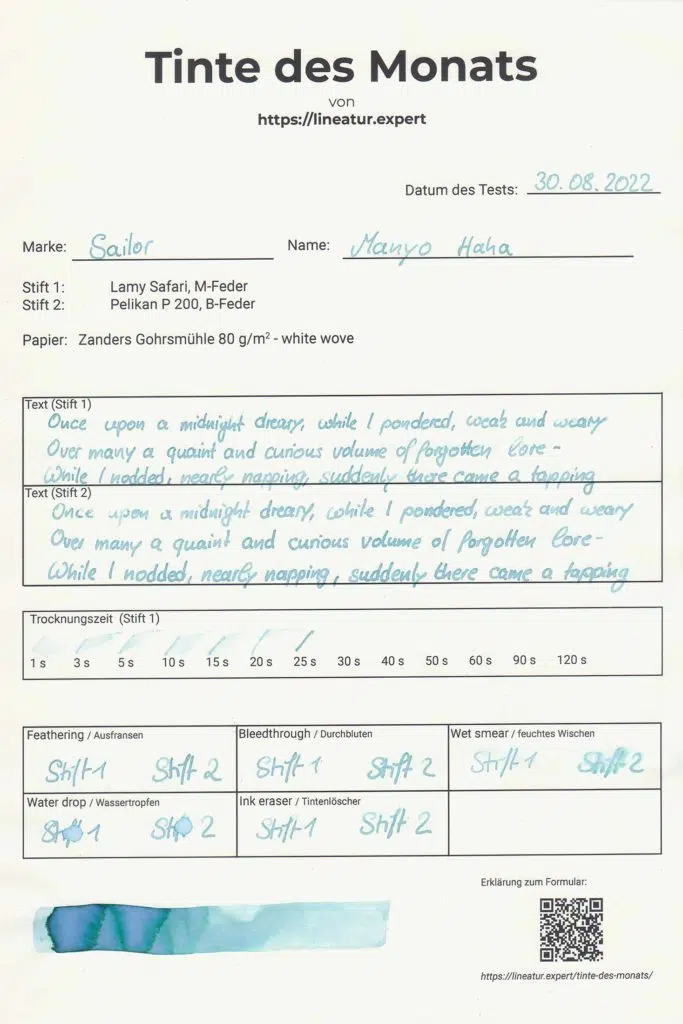 Tinte des Monats
von
https://lineatur.expert
Datum des Tests: 30.08.2022
Marke: Sailor Name: Manyo Haha
Stift 1: Lamy Safari, M-Feder
Stift 2: Pelikan P 200, B-Feder
Papier: Zanders Gohrsmühle 80 g/m² - white wove
Text (Stift 1)
Once upon a midnight dreary, while I pondered, weak and weary
Over many a quaint and curious volume of forgotten lore-
While I nodded, nearly napping, suddenly there came a tapping
Text (Stift 2)
Once upon a midnight dreary, while I pondered, weak and weary
Over many a quaint and curious volume of forgotten lore-
While I nodded, nearly napping, suddenly there came a tapping
Trocknungszeit (Stift 1)
1 s 3 s 5 s 10 s 15 s 20 s 25 s 30 s 40 s 50 s 60 s 90 s 120 s
Feathering / Ausfransen Bleedthrough / Durchbluten Wet smear / feuchtes Wischen
Stift 1 Stift 2 Stift 1 Stift 2 Stift 1 Stift 2
Water drop / Wassertropfen Ink eraser / Tintenlöscher
Stift 1 Stift 2 Stift 1 Stift 2
Erklärung zum Formular:
https://lineatur.expert/tinte-des-monats/